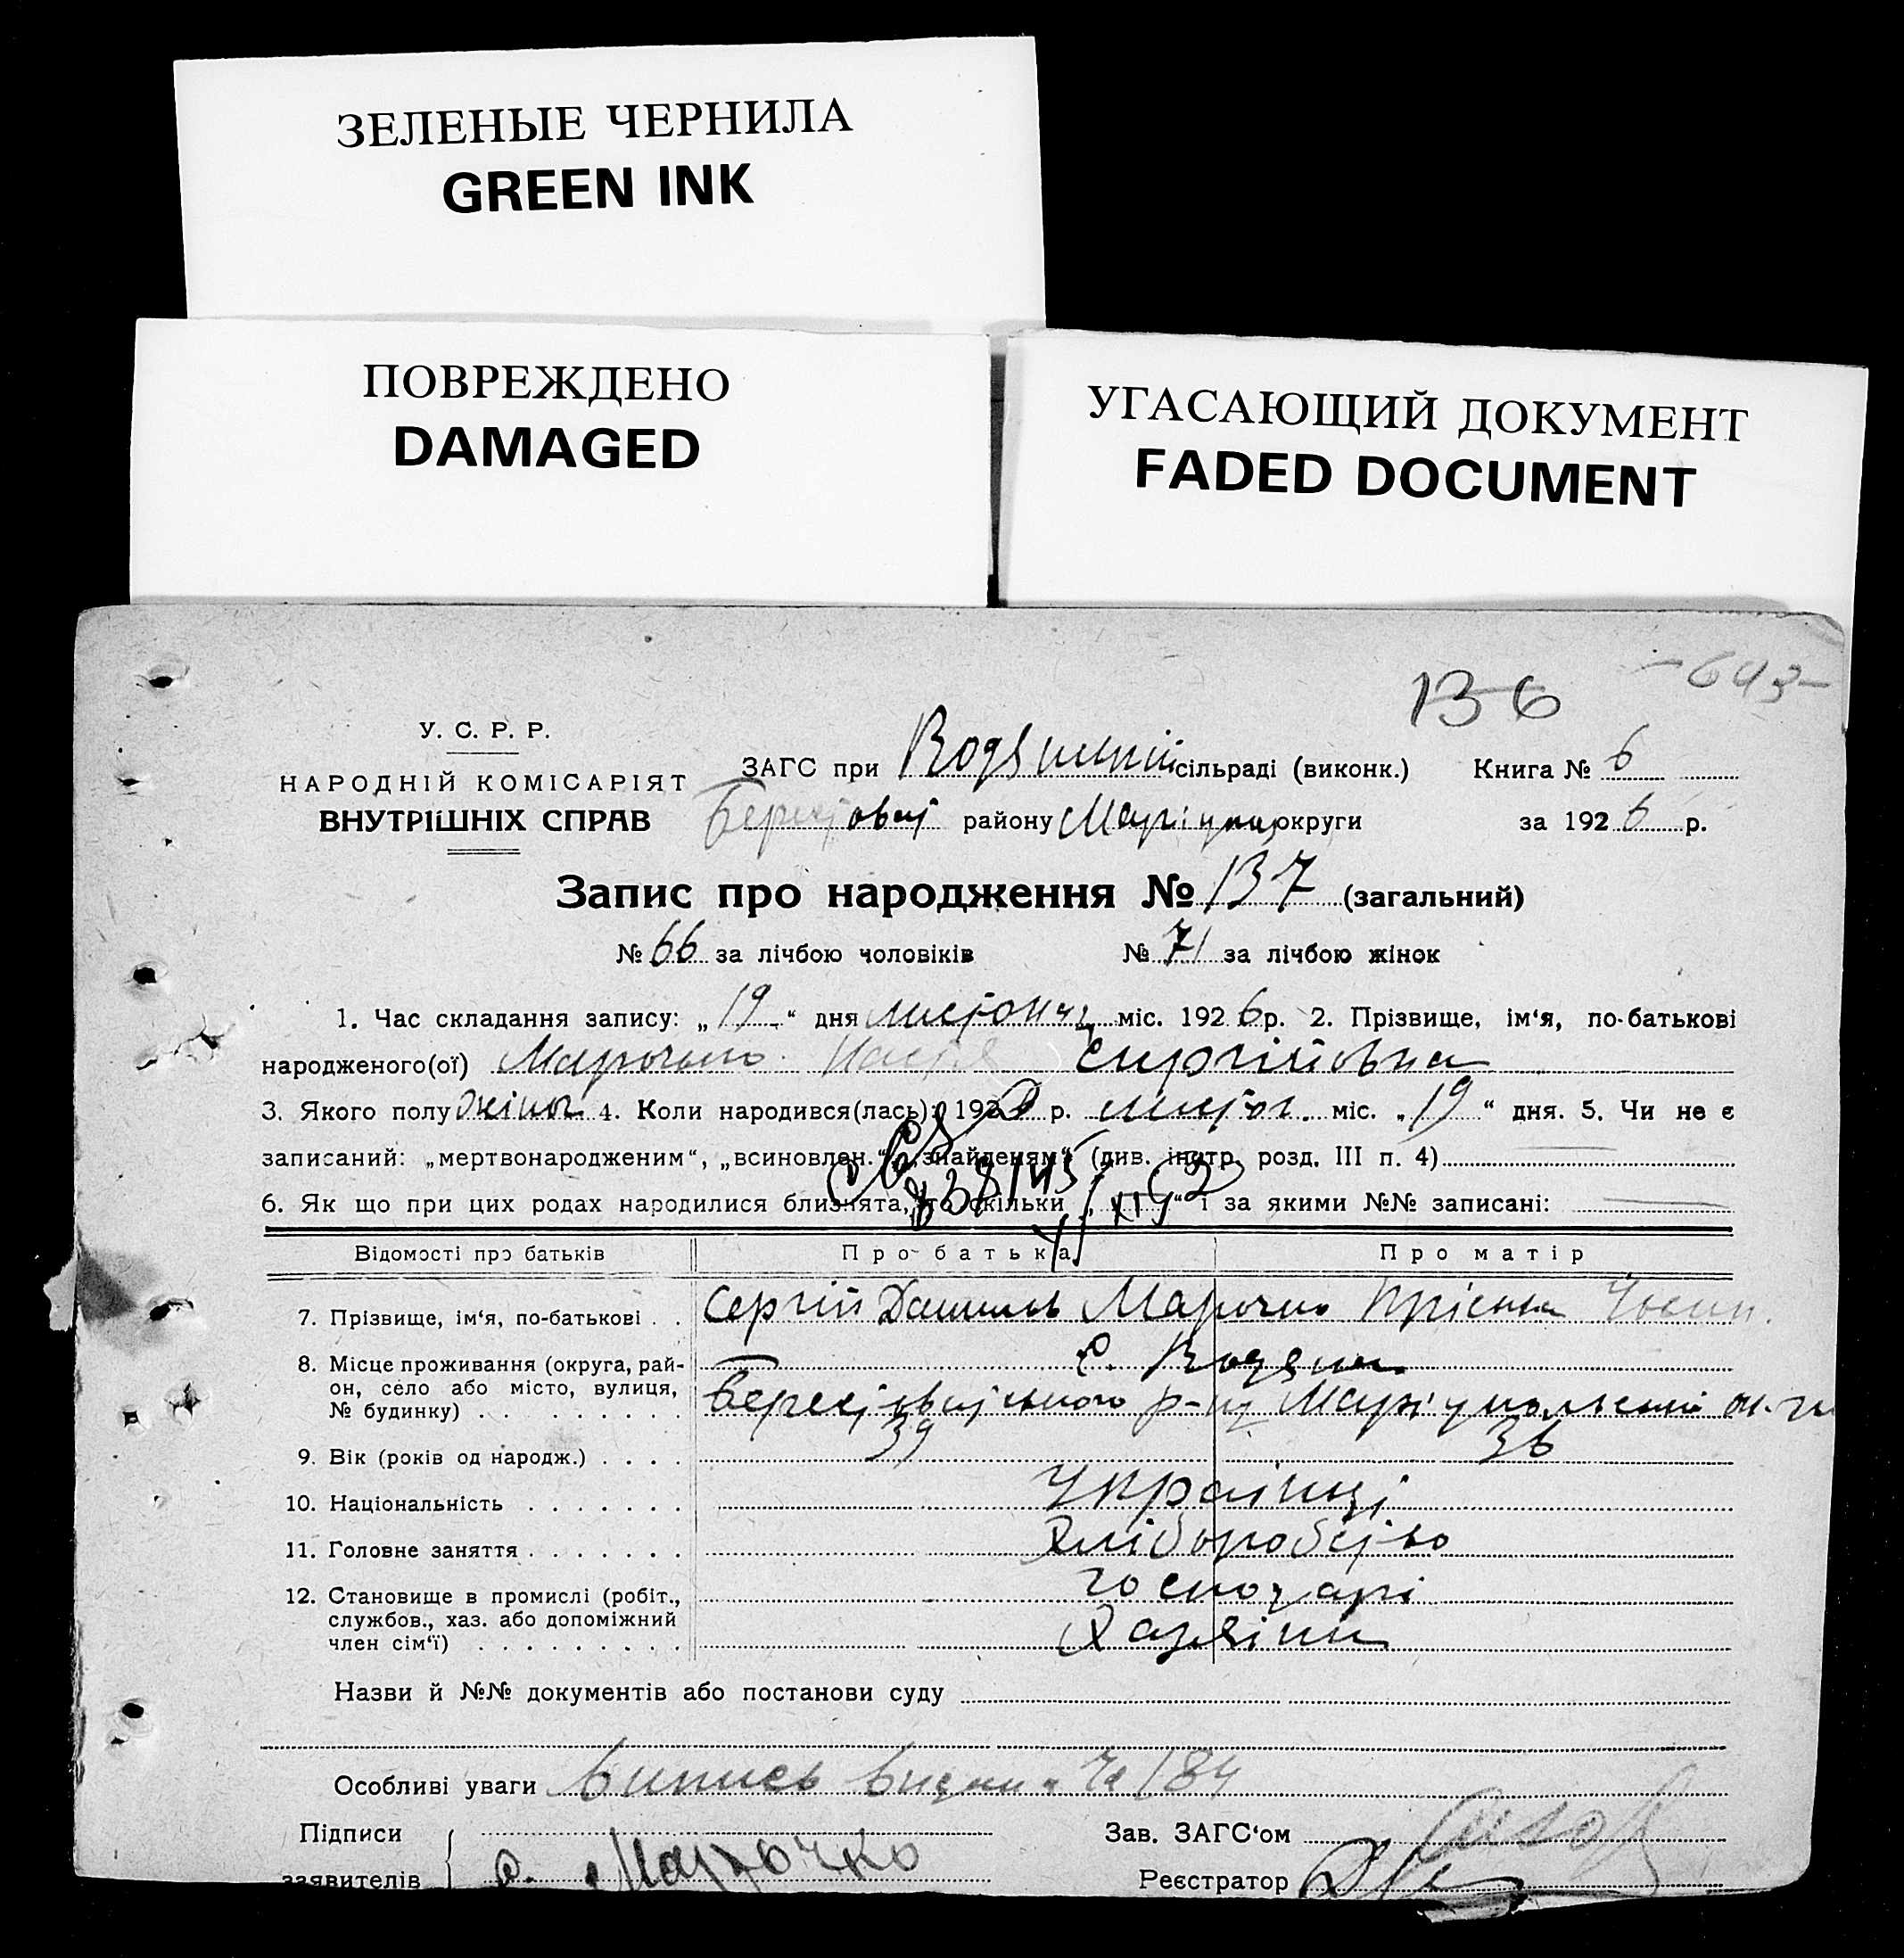 ЗЕЛЕНЫЕ ЧЕРНИЛА
GREEN INK
ПОВРЕЖДЕНО
DAMAGED
УГАСАЮЩИЙ ДОКУМЕНТ
FADED DOCUMENT
-643-
136
У. С. Р. Р.
НАРОДНІЙ КОМІСАРІЯТ
ВНУТРІШНІХ СПРАВ
ЗАГС при сільраді (виконк.) Книга № 6
району округи за 1926 р.
Запис про народження № 137 (загальний)
№ 66 за лічбою чоловіків № 71 за лічбою жінок
1. Час складання запису: „19“ дня листопада міс. 1926 р. 2. Прізвище, ім‘я, по-батькові
народженого(ої) Марочко Сиргіївна
3. Якого полу жіноч. 4. Коли народився(лась): 192 р. листоп. міс. „19“ дня. 5. Чи не є
записаний: „мертвонародженим“, „всиновлен.“, „знайденям“ (див. інстр. розд. III п. 4)
6. Як що при цих родах народилися близнята, то скільки „ “ і за якими №№ записані:
Відомості про батьків Про батька Про матір
7. Прізвище, ім‘я, по-батькові . . Сергій Данилов Марочко
8. Місце проживання (округа, рай-
он, село або місто, вулиця,
№ будинку) . . . . . . . . р-на Маріупольської
9. Вік (років од народж.) . . . . 39 36
10. Національність . . . . . . . Українці
11. Головне заняття . . . . . . . Хліборобство
12. Становище в промислі (робіт., господарі
службов., хаз. або допоміжний
член сім‘ї) . . . . . . . . . Хазяїни
Назви й №№ документів або постанови суду
Особливі уваги Випись видана № 184
Підписи Зав. ЗАГС‘ом
заявителів С. Марочко Реєстратор